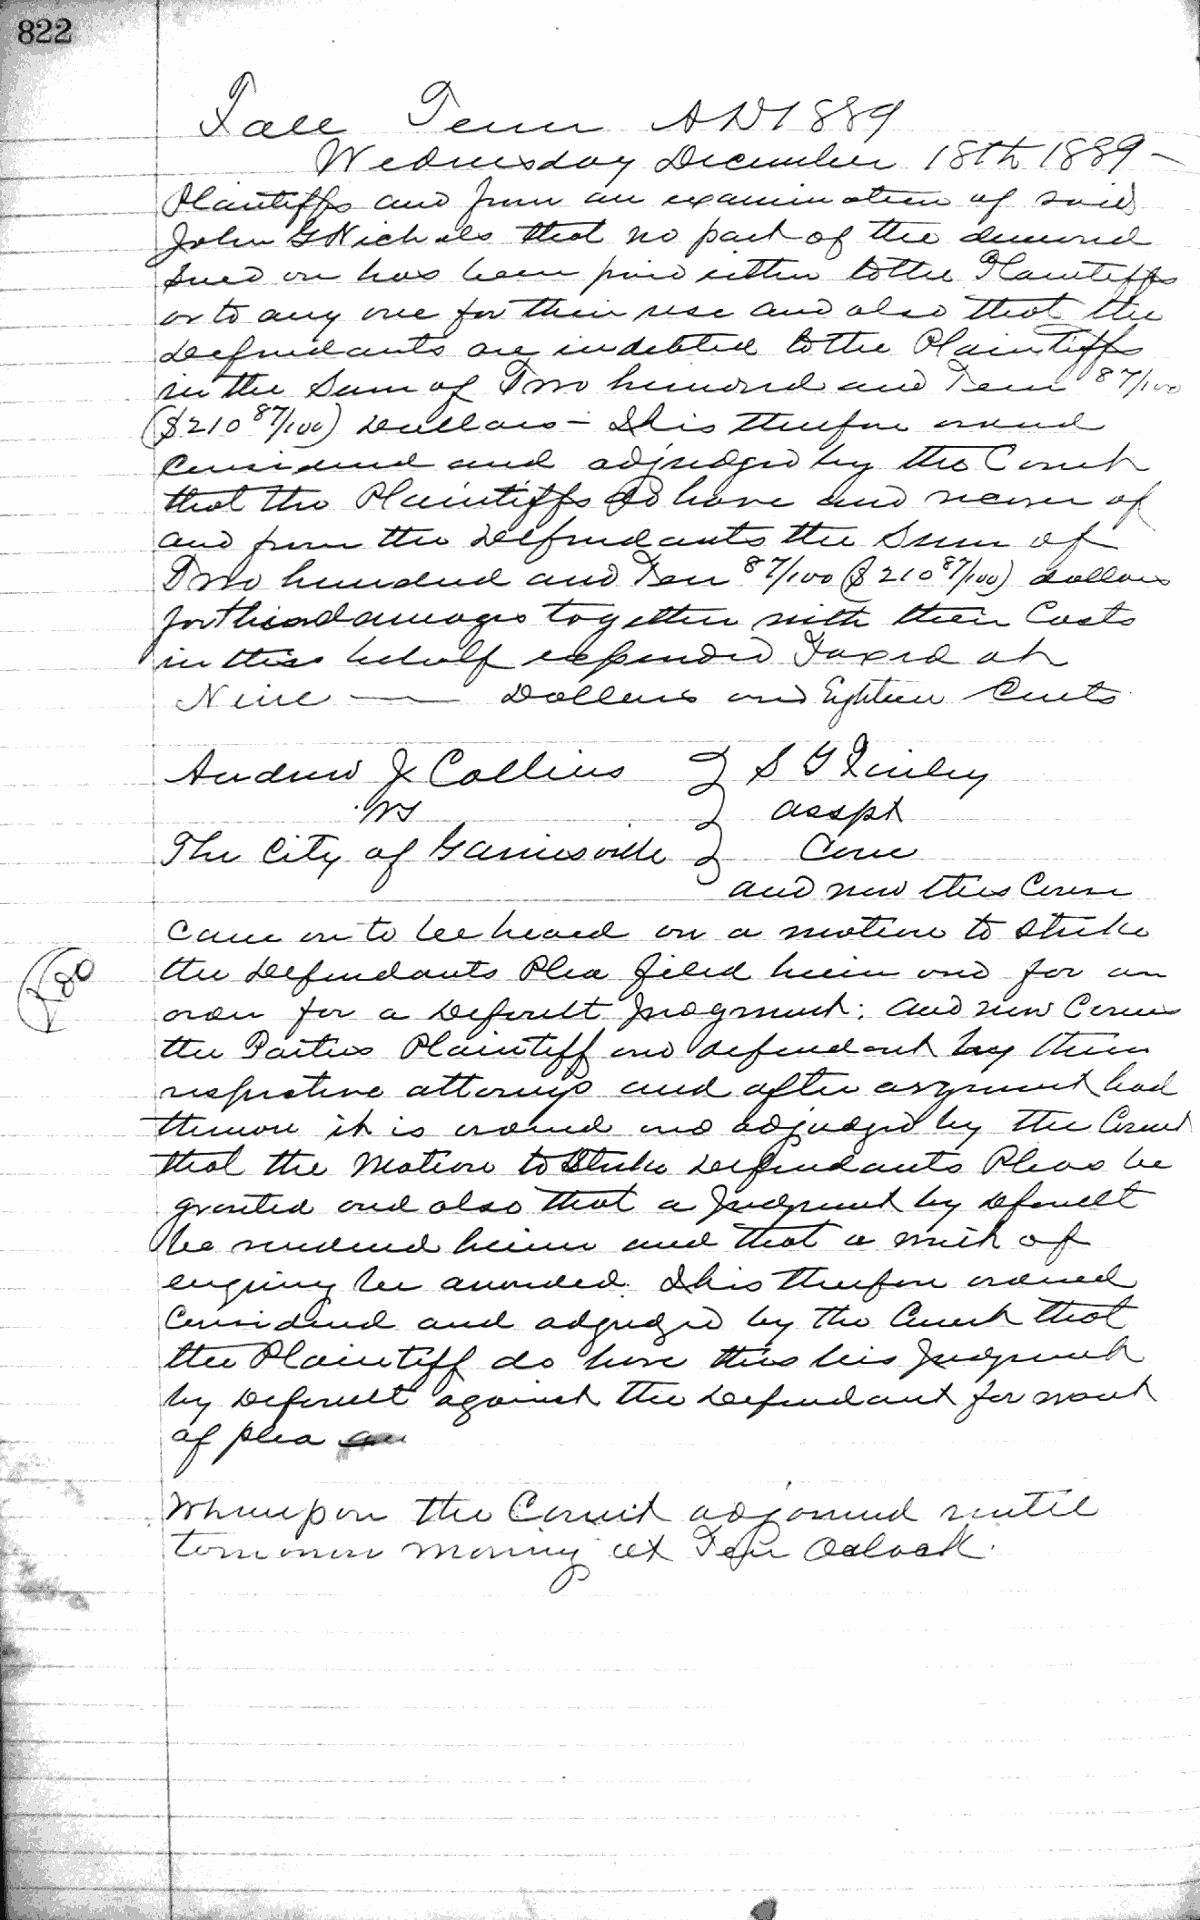 822
Fall Term AD 1889
Wednesday December 18th 1889 –
Plaintiffs and from an examination of said
John G Nichols that no part of the demand
sued on has been paid either to the Plaintiffs
or to any one for their use and also that the
Defendants are indebted to the Plaintiffs
in the Sum of Two hundred and Ten 87/100
($210 87/100) Dollars – It is therefore ordered
Considered and adjudged by the Court
that the Plaintiffs do have and recover of
and from the Defendants the Sum of
Two hundred and Ten 87/100 ($210 87/100) dollars
for their damages together with their Costs
in this behalf expended Taxed at
Nine — Dollars and Eighteen Cents
Andrew J Collins } S G Finley
vs } asspt
The City of Gainesville } Cove
and now this Cause
Came on to be heard on a motion to Strike
the Defendants Plea filed herein and for an
order for a Default Judgment; and now Comes
the Parties Plaintiff and defendant by their
respective attorneys and after argument had
thereon it is ordered and adjudged by the Court
that the Motion to Strike Defendants Pleas be
granted and also that a Judgment by default
be rendered herein and that a writ of
enquiry be awarded. It is therefore ordered
Considered and adjudged by the Court that
the Plaintiff do have this his Judgment
by Default against the Defendant for want
of plea
Whereupon the Court adjourned until
tomorrow morning at Ten Oclock.